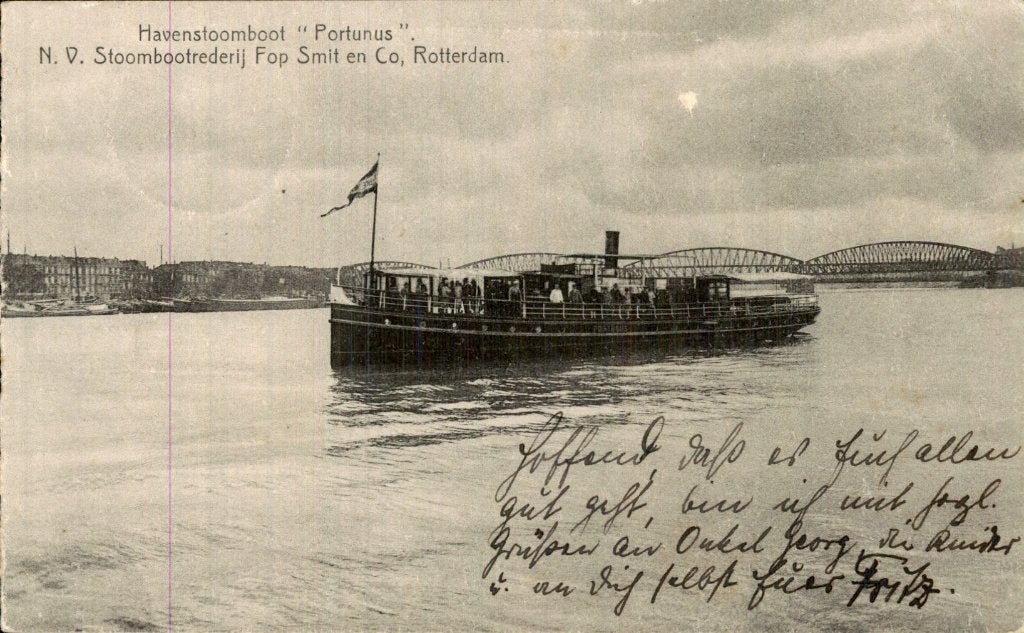 Havenstoomboot "Portunus".
N. V. Stoombootrederij Fop Smit en Co, Rotterdam.
Hoffend, daß es Euch allen
gut geht, bin ich mit herzl.
Grüßen an Onkel Georg, die Kinder
u. an Dich selbst Euer Fritz.